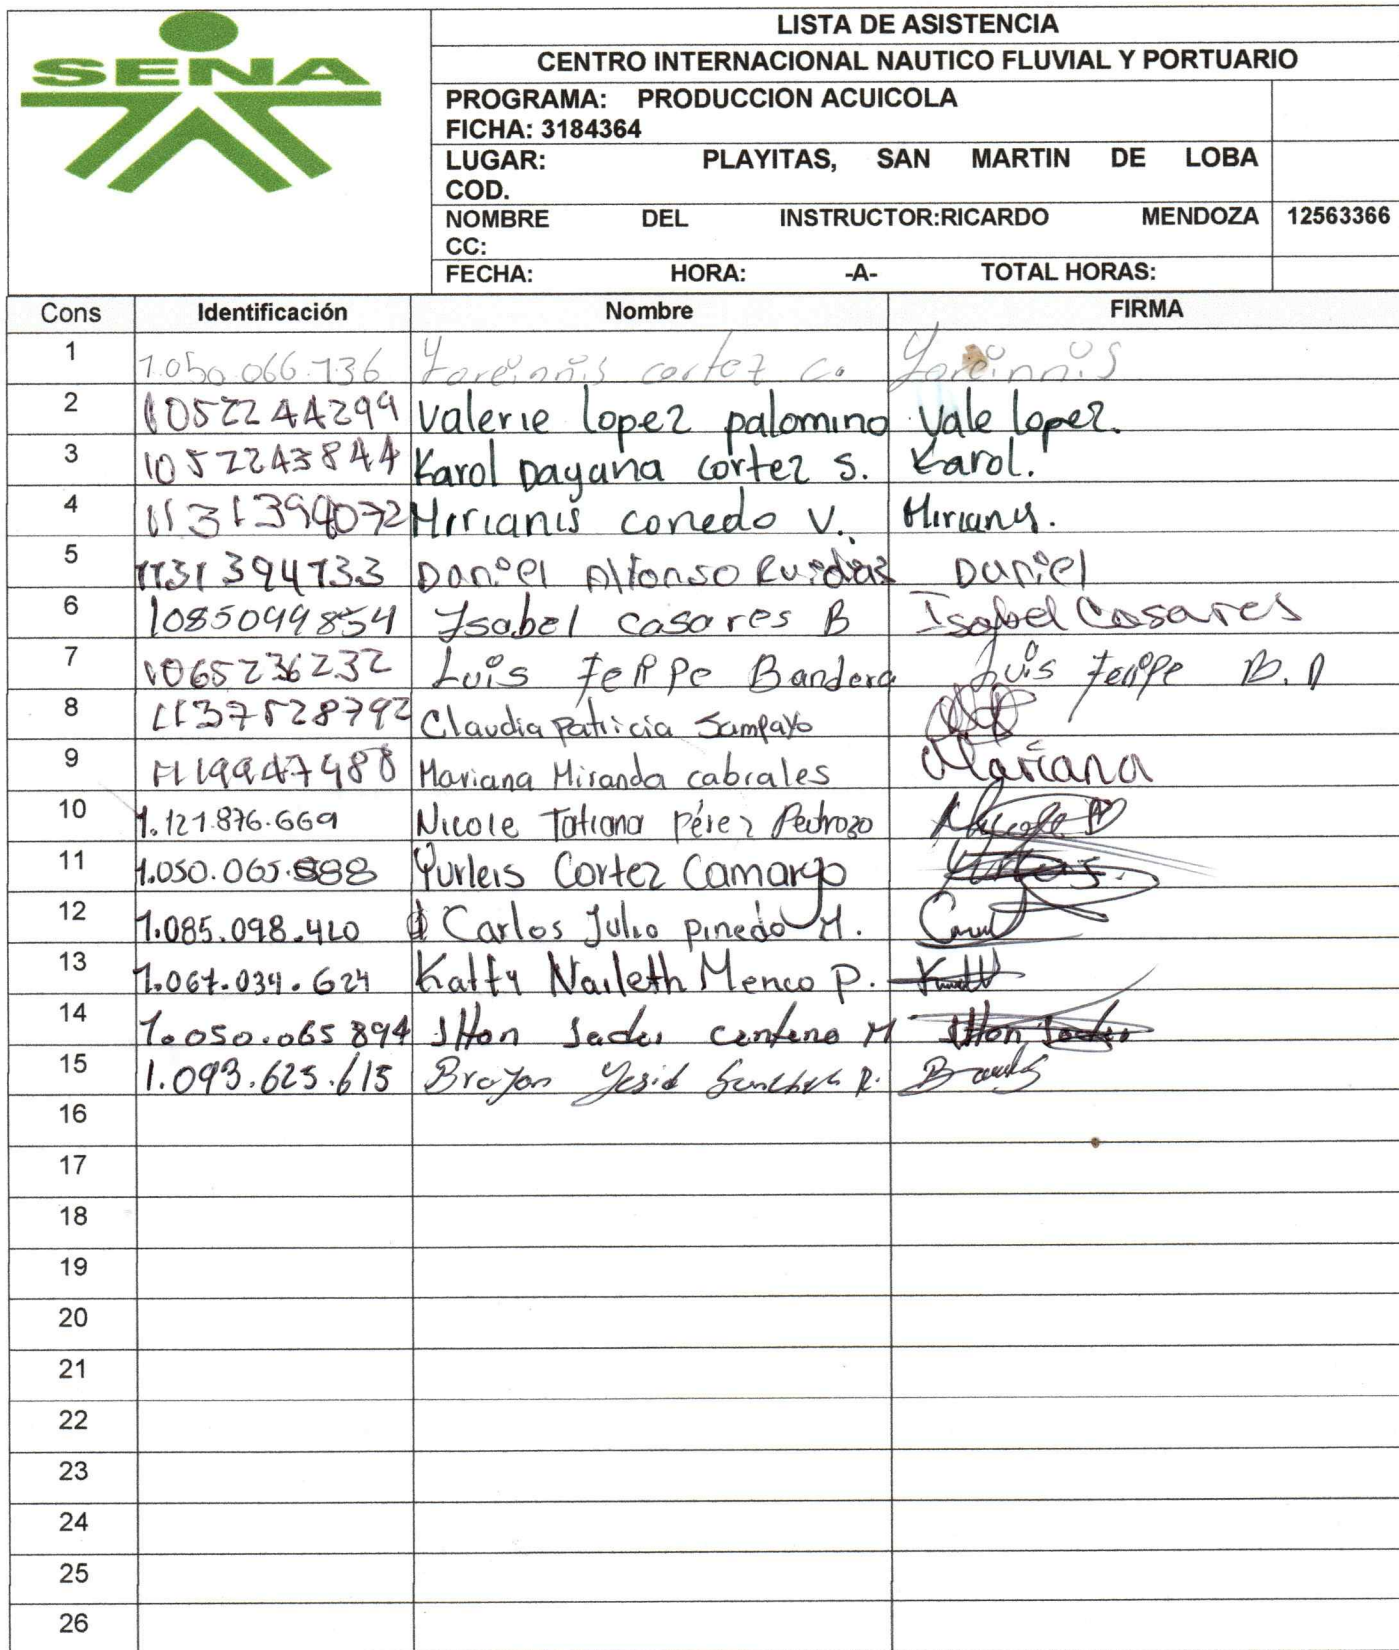 SENA
LISTA DE ASISTENCIA
CENTRO INTERNACIONAL NAUTICO FLUVIAL Y PORTUARIO
PROGRAMA: PRODUCCION ACUICOLA
FICHA: 3184364
LUGAR: PLAYITAS, SAN MARTIN DE LOBA
COD.
NOMBRE DEL INSTRUCTOR:RICARDO MENDOZA 12563366
CC:
FECHA: HORA: -A- TOTAL HORAS:
Cons Identificación Nombre FIRMA
1 1.050.066.736 Yoreinnis cortez c. Yoreinnis
2 1052244299 Valerie lopez palomino Vale lopez.
3 1052243844 Karol Dayana cortez s. Karol.
4 1131394072 Mirianis conedo V. Miriany.
5 1131394733 Daniel Alfonso Ruidiaz Daniel
6 1085099854 Isabel casares B Isabel Casares
7 1065236232 Luis Felipe Bandera Luis Felipe B.
8 1137528792 Claudia patricia Sampayo
9 1119947488 Mariana Miranda cabrales Mariana
10 1.121.876.669 Nicole Tatiana Pérez Pedrozo Nicole
11 1.050.065. Yurleis Cortez Camargo
12 1.085.098.420 Carlos Julio pinedo M.
13 1.067.034.624 Katty Naileth Menco P.
14 1.050.065 894 Jhon centeno M Jhon
15 1.093.625.615 Brayan Yesid R.
16
17
18
19
20
21
22
23
24
25
26